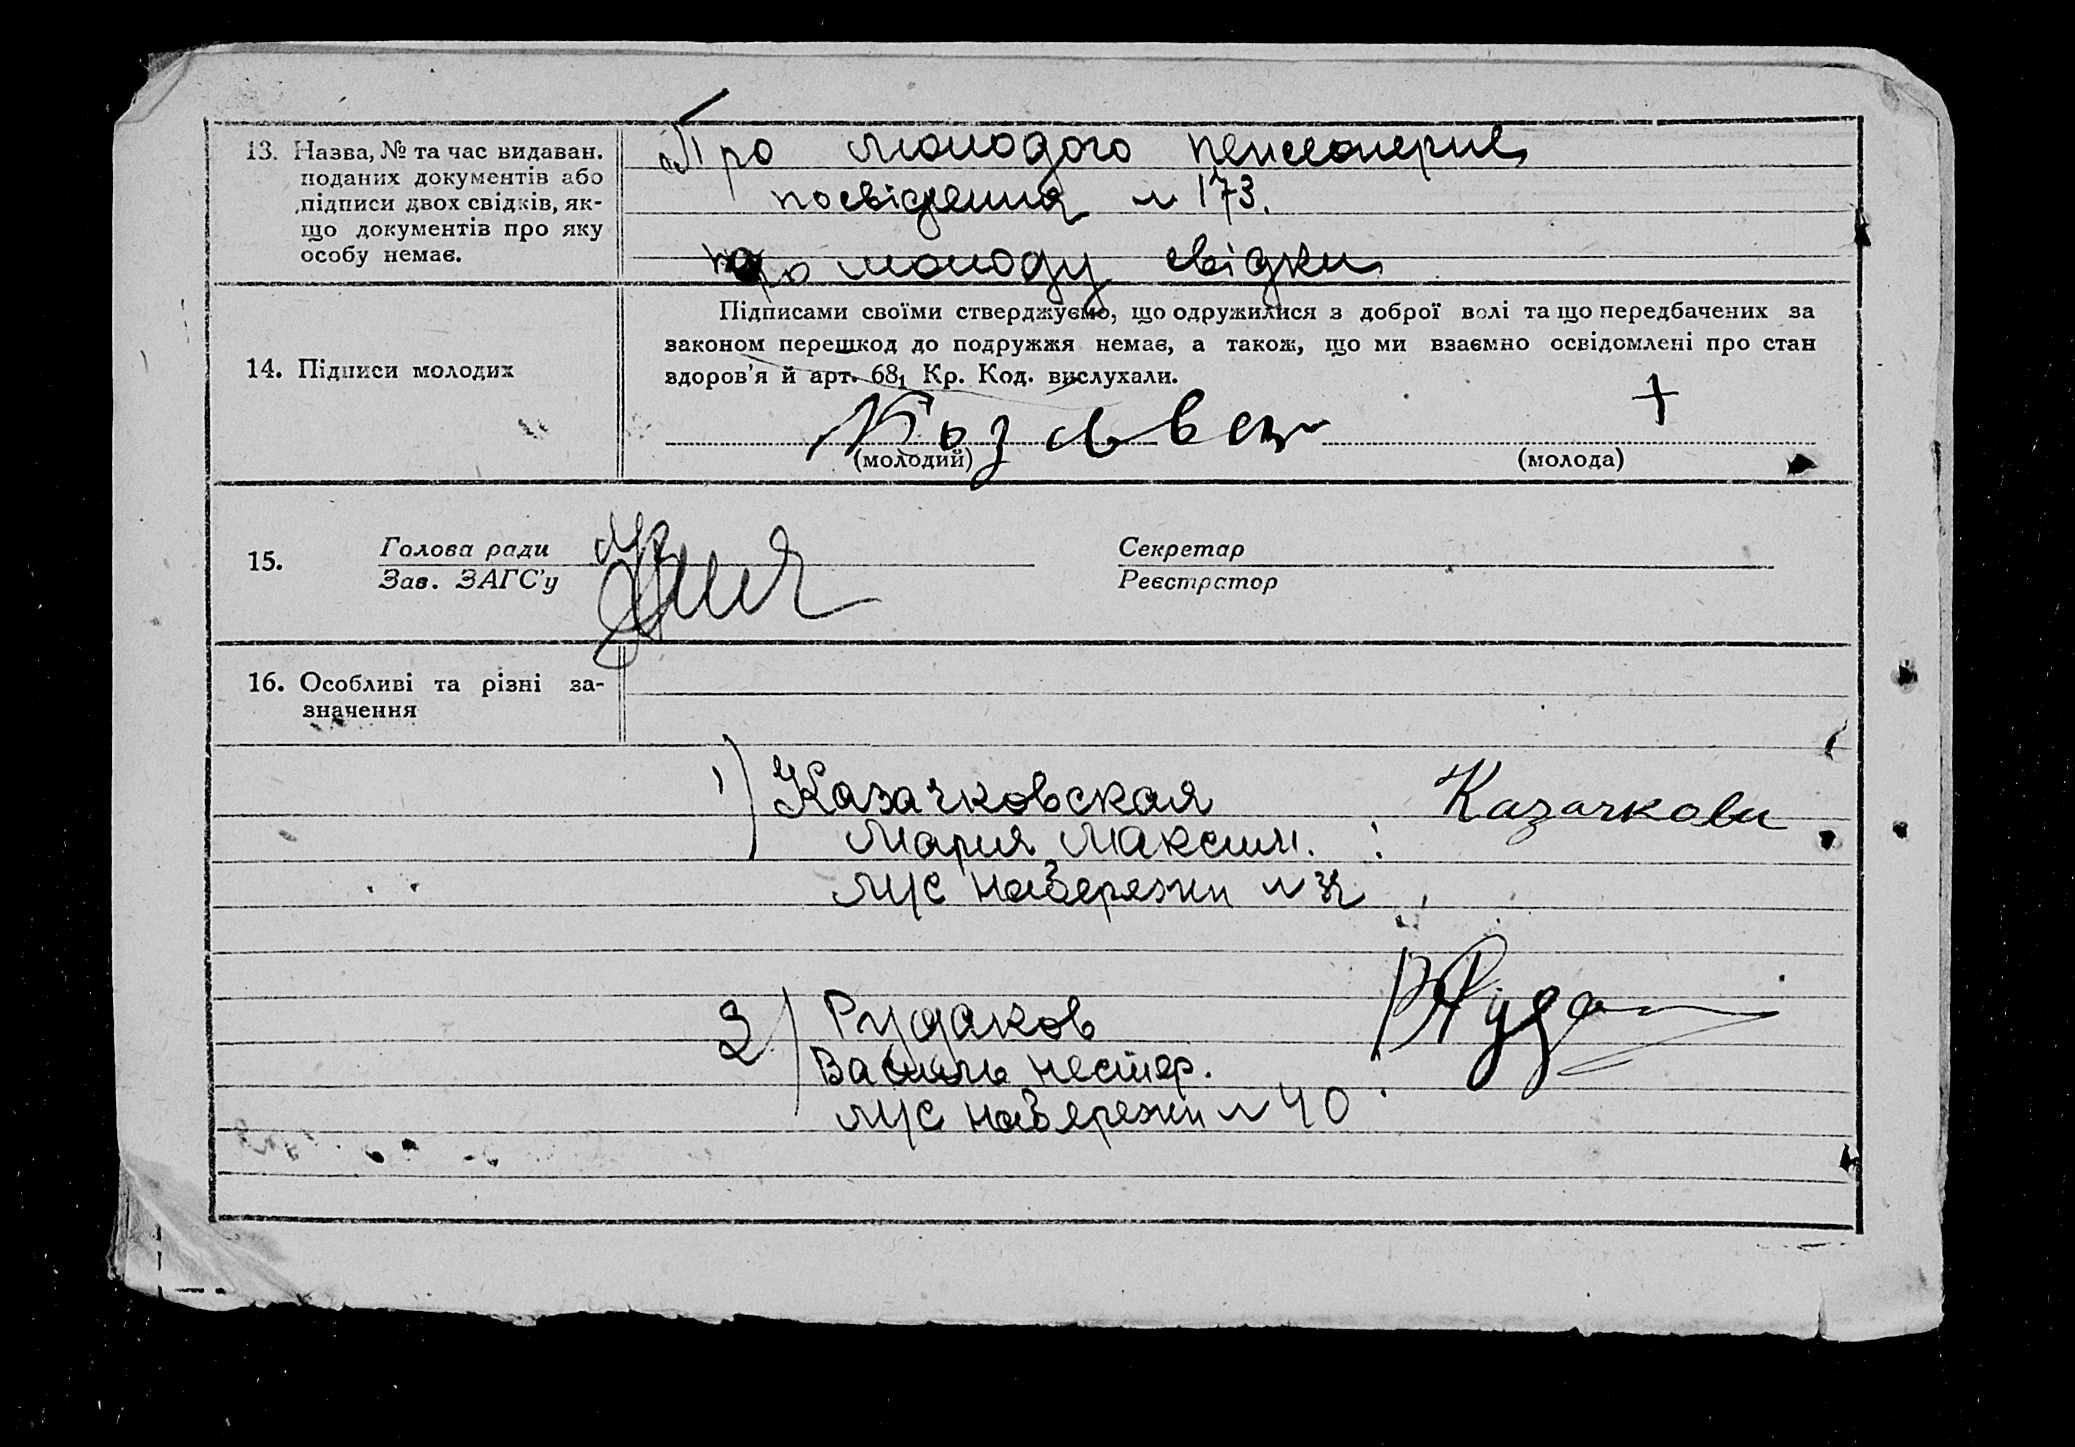 13. Назва, № та час видаван.
поданих документів або
підписи двох свідків, як-
що документів про яку
особу немає.
Про молодого пенсионерне
посвідчення № 173.
про молоду свідки
14. Підписи молодих
Підписами своїми стверджуємо, що одружилися з доброї волі та що передбачених за
законом перешкод до подружжя немає, а також, що ми взаємно освідомлені про стан
здоров'я й арт. 68₁ Кр. Код. вислухали.
+
(молодий)
(молода)
15.
Голова ради
Зав. ЗАГС'у
Секретар
Реєстратор
16. Особливі та різні за-
значення
1) Казачковская
Мария Максим.
набережн № 32
Казачкови
2) Рудаков
Василь Нестер.
набережн № 40